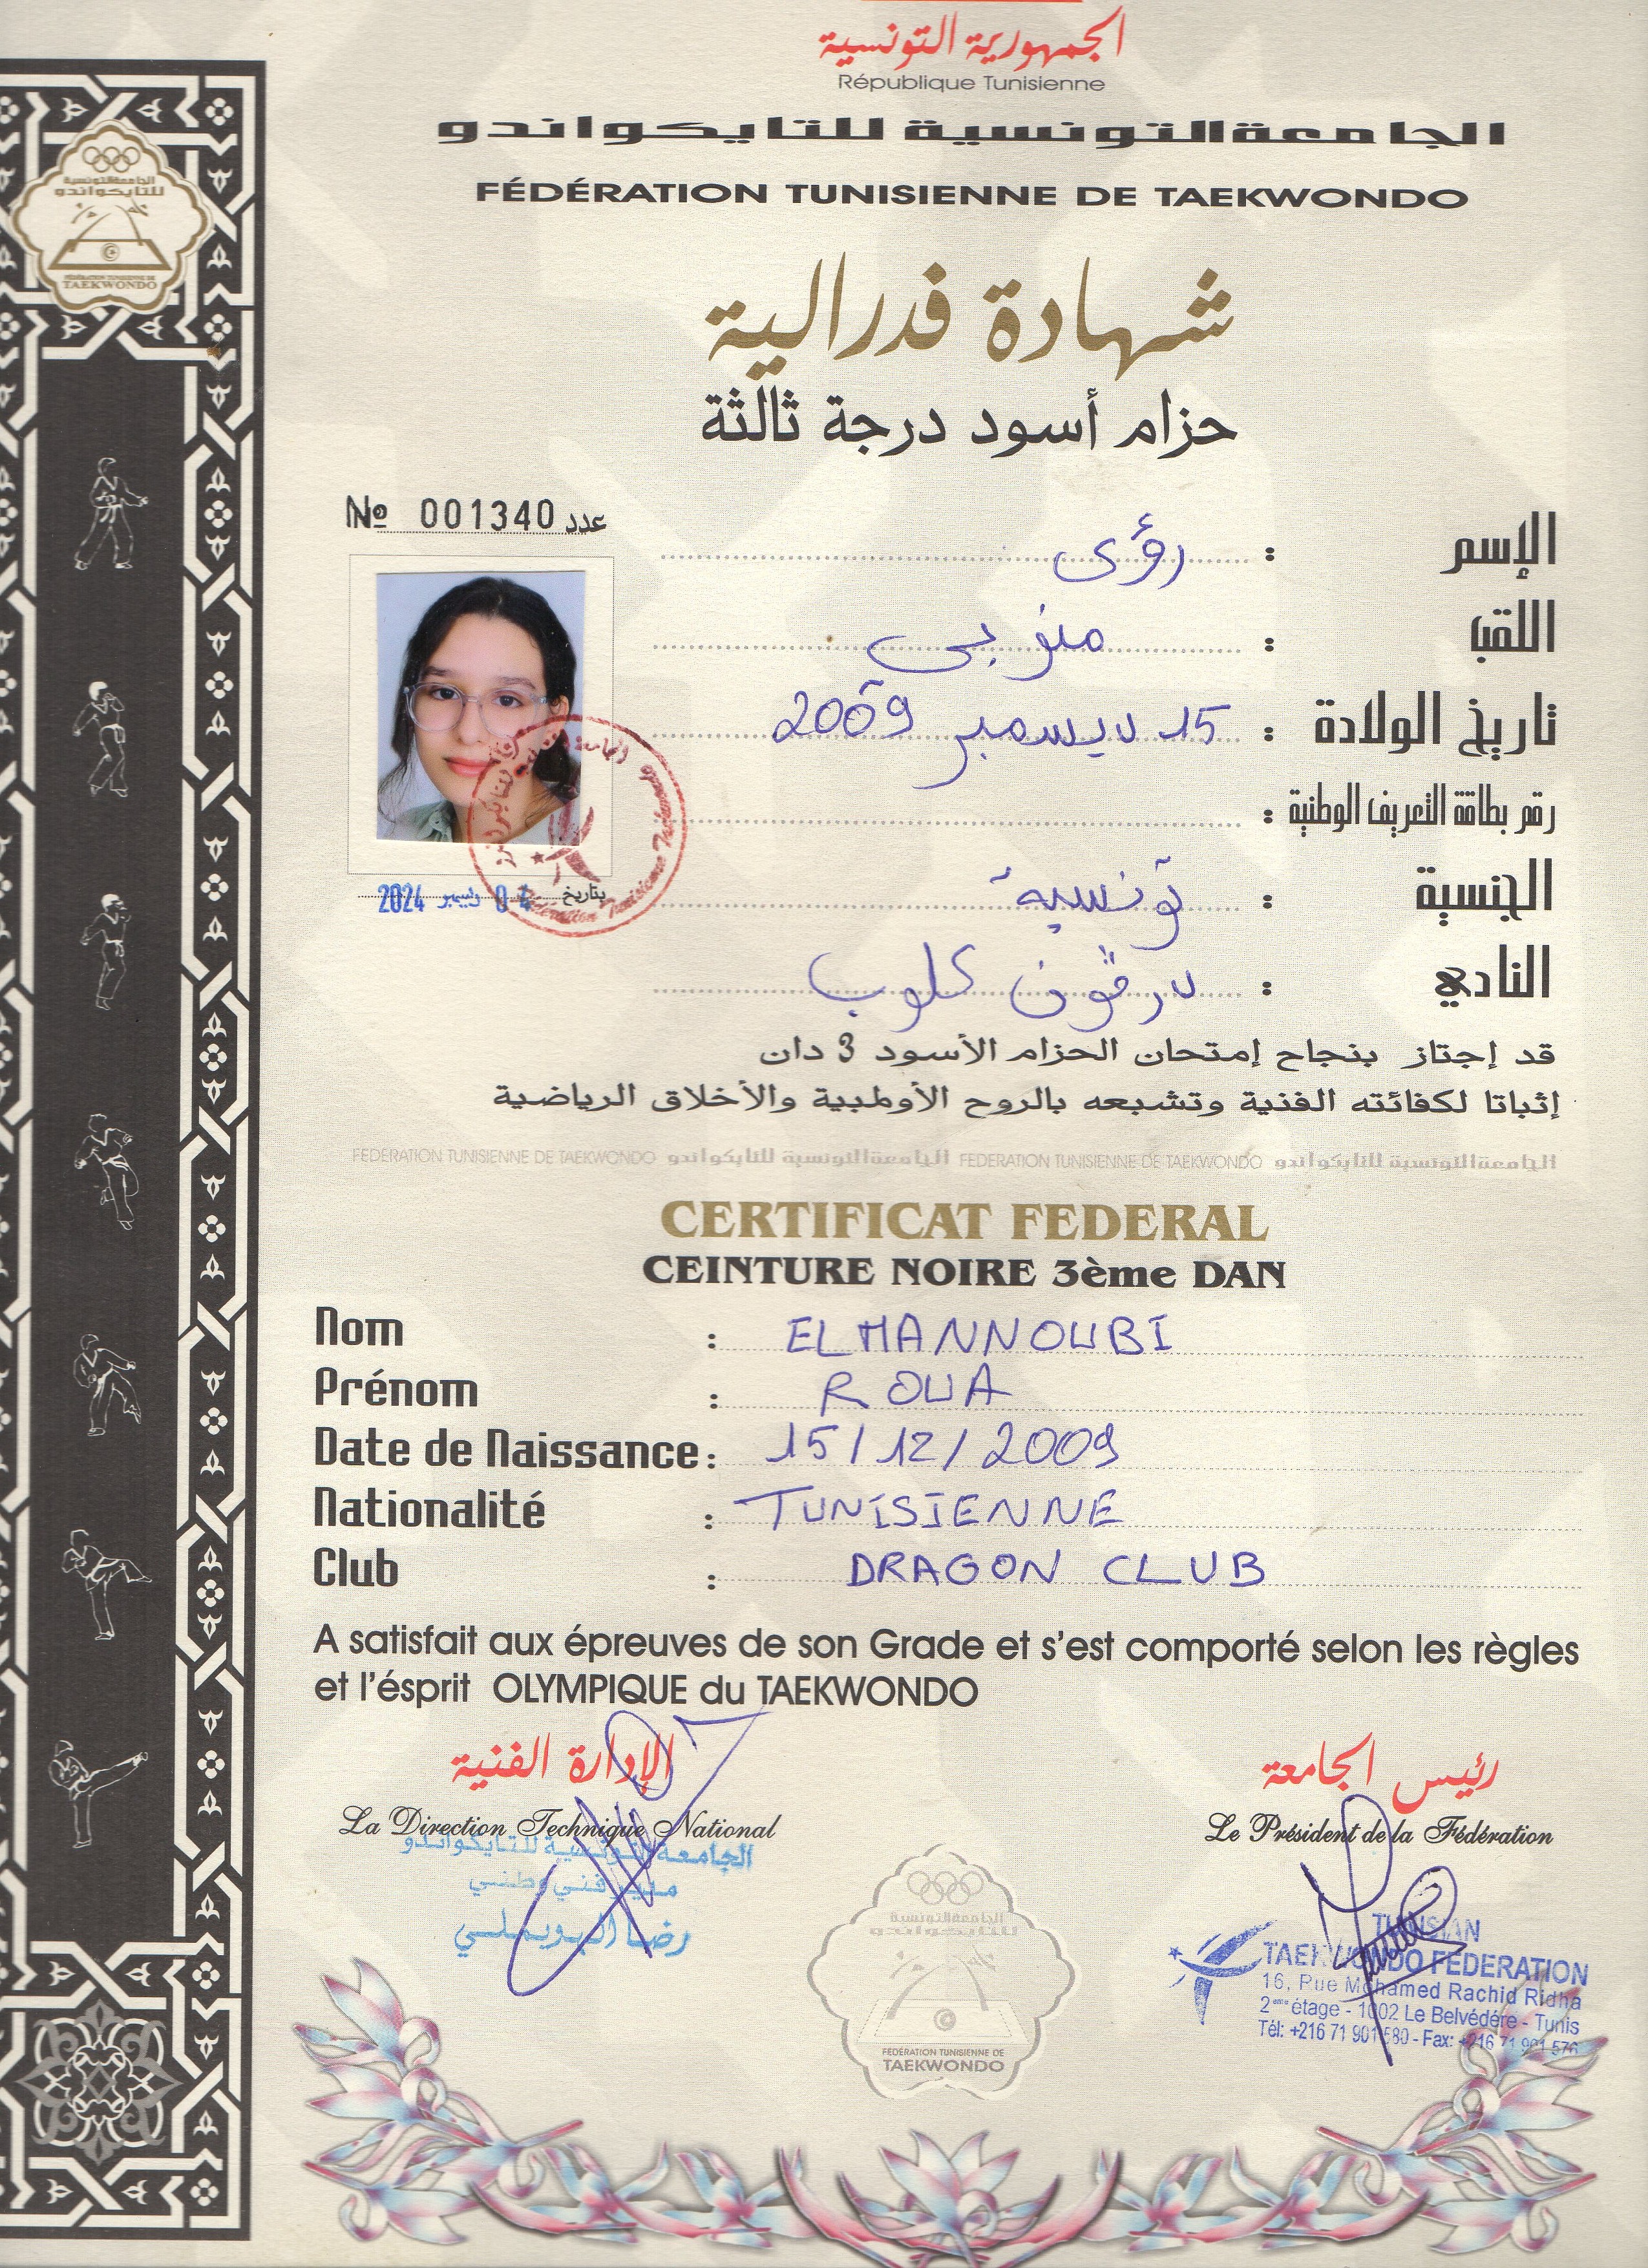 الجمهورية التونسية
République Tunisienne
الجامعة التونسية للتايكواندو
FÉDÉRATION TUNISIENNE DE TAEKWONDO
الجامعة التونسية
للتايكواندو
FÉDÉRATION TUNISIENNE DE
TAEKWONDO
شهادة فدرالية
حزام أسود درجة ثالثة
№ 001340 عدد
الإسم : رؤى
اللقب : منوبي
تاريخ الولادة : 15 ديسمبر 2009
رقم بطاقة التعريف الوطنية :
بتاريخ 04 ديسمبر 2024
الجنسية : تونسية
النادي : درڨون كلوب
Fédération Tunisienne Taekwondo
قد إجتاز بنجاح إمتحان الحزام الأسود 3 دان
إثباتا لكفائته الفنية وتشبعه بالروح الأولمبية والأخلاق الرياضية
FEDERATION TUNISIENNE DE TAEKWONDO الجامعة التونسية للتايكواندو FEDERATION TUNISIENNE DE TAEKWONDO الجامعة التونسية للتايكواندو
CERTIFICAT FEDERAL
CEINTURE NOIRE 3ème DAN
Nom : ELMANNOUBI
Prénom : ROUA
Date de Naissance : 15/12/2009
Nationalité : TUNISIENNE
Club : DRAGON CLUB
A satisfait aux épreuves de son Grade et s'est comporté selon les règles
et l'ésprit OLYMPIQUE du TAEKWONDO
الإدارة الفنية
La Direction Technique National
الجامعة التونسية للتايكواندو
مدير فني وطني
رضا البويملي
رئيس الجامعة
Le Président de la Fédération
TUNISIAN
TAEKWONDO FEDERATION
16, Rue Mohamed Rachid Ridha
2ème étage - 1002 Le Belvédére - Tunis
Tél: +216 71 901 580 - Fax: +216 71 901 576
الجامعة التونسية
للتايكواندو
FÉDÉRATION TUNISIENNE DE
TAEKWONDO